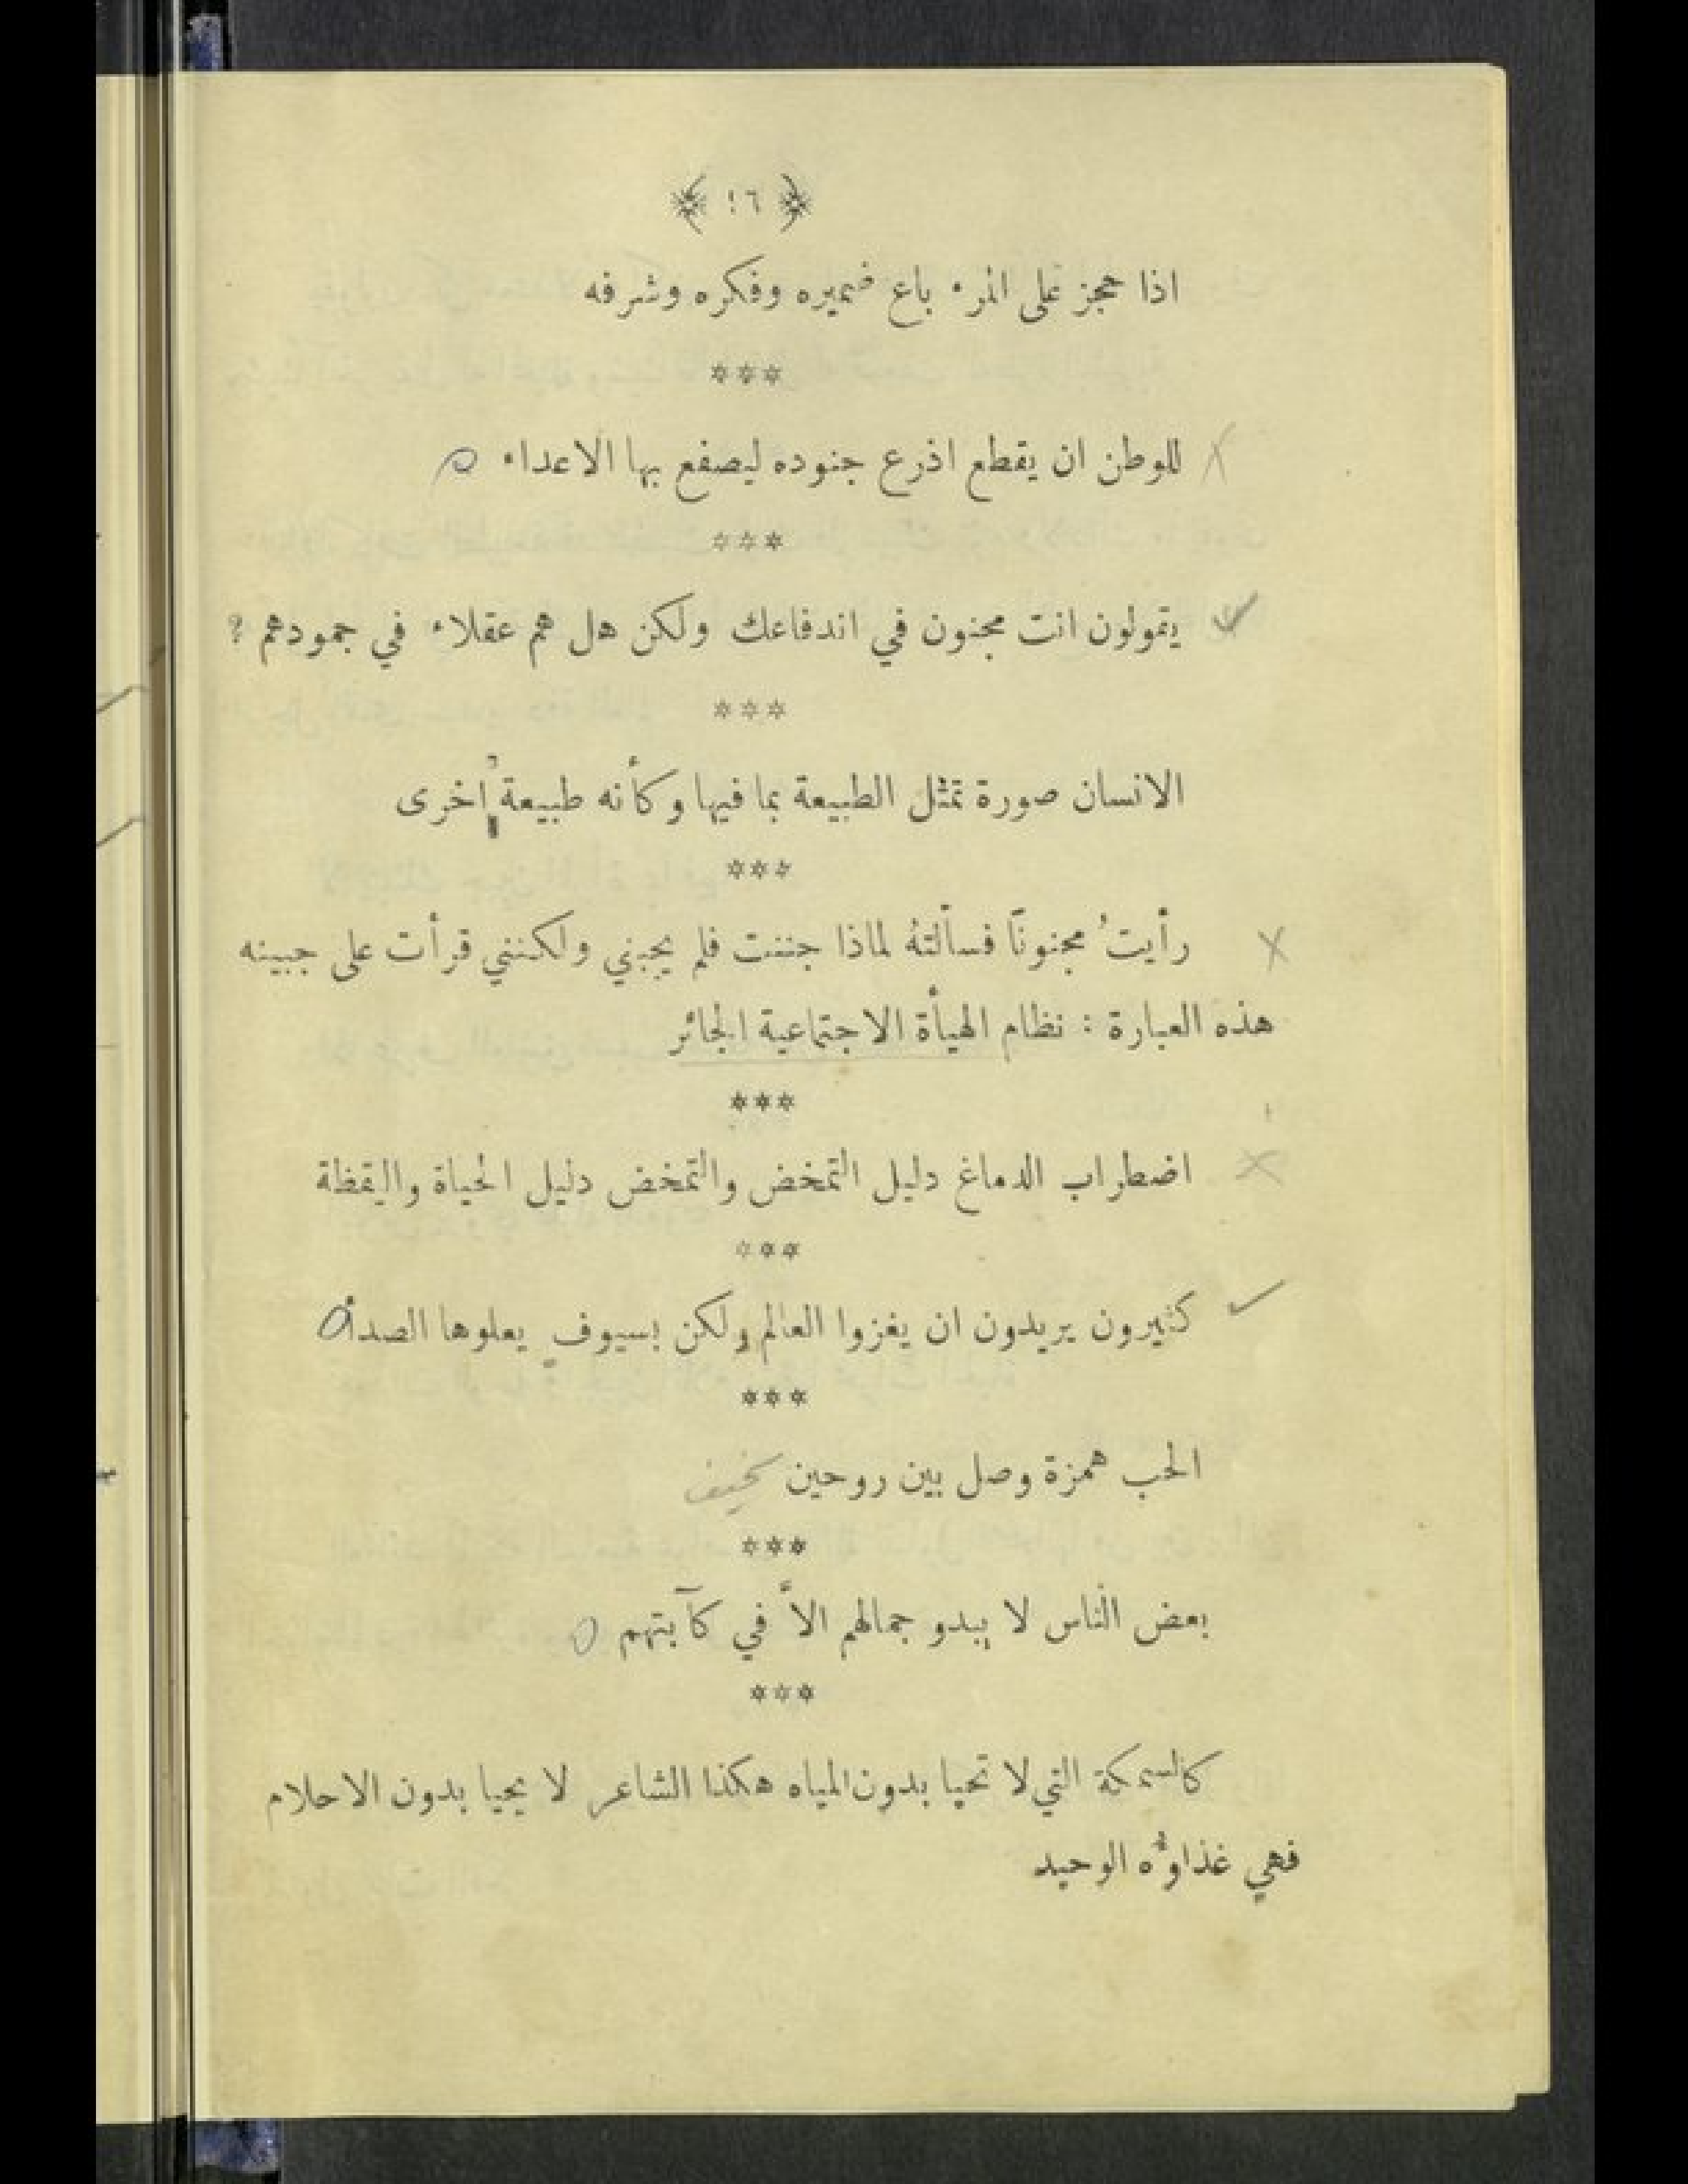 ﴿ ١٦ ﴾
اذا حجز على المرء باع ضميره وفكره وشرفه
***
للوطن ان يقطع اذرع جنوده ليصفع بها الاعداء
***
يقولون انت مجنون في اندفاعك ولكن هل هم عقلاء في جمودهم ?
***
الانسان صورة تمثل الطبيعة بما فيها وكأنه طبيعة أخرى
***
رأيتُ مجنونًا فسألتهُ لماذا جننت فلم يجبني ولكنني قرأت على جبينه
هذه العبارة : نظام الهيأة الاجتماعية الجائر
***
اضطراب الدماغ دليل التمخض والتمخض دليل الحياة واليقظة
***
كثيرون يريدون ان يغزوا العالم ولكن بسيوف يعلوها الصدأ
***
الحب همزة وصل بين روحين سخيف
***
بعض الناس لا يبدو جمالهم الاَّ في كآبتهم
***
كالسمكة التي لا تحيا بدون المياه هكذا الشاعر لا يحيا بدون الاحلام
فهي غذاوُه الوحيد